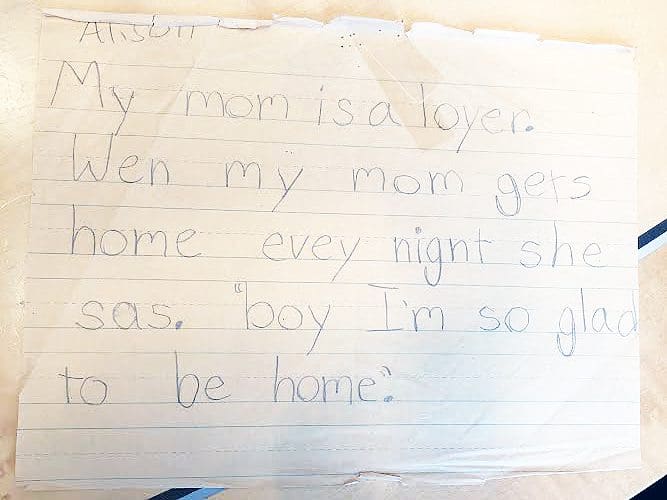 Alison
My mom is a loyer.
Wen my mom gets
home evey night she
sas. "boy I'm so glad
to be home".